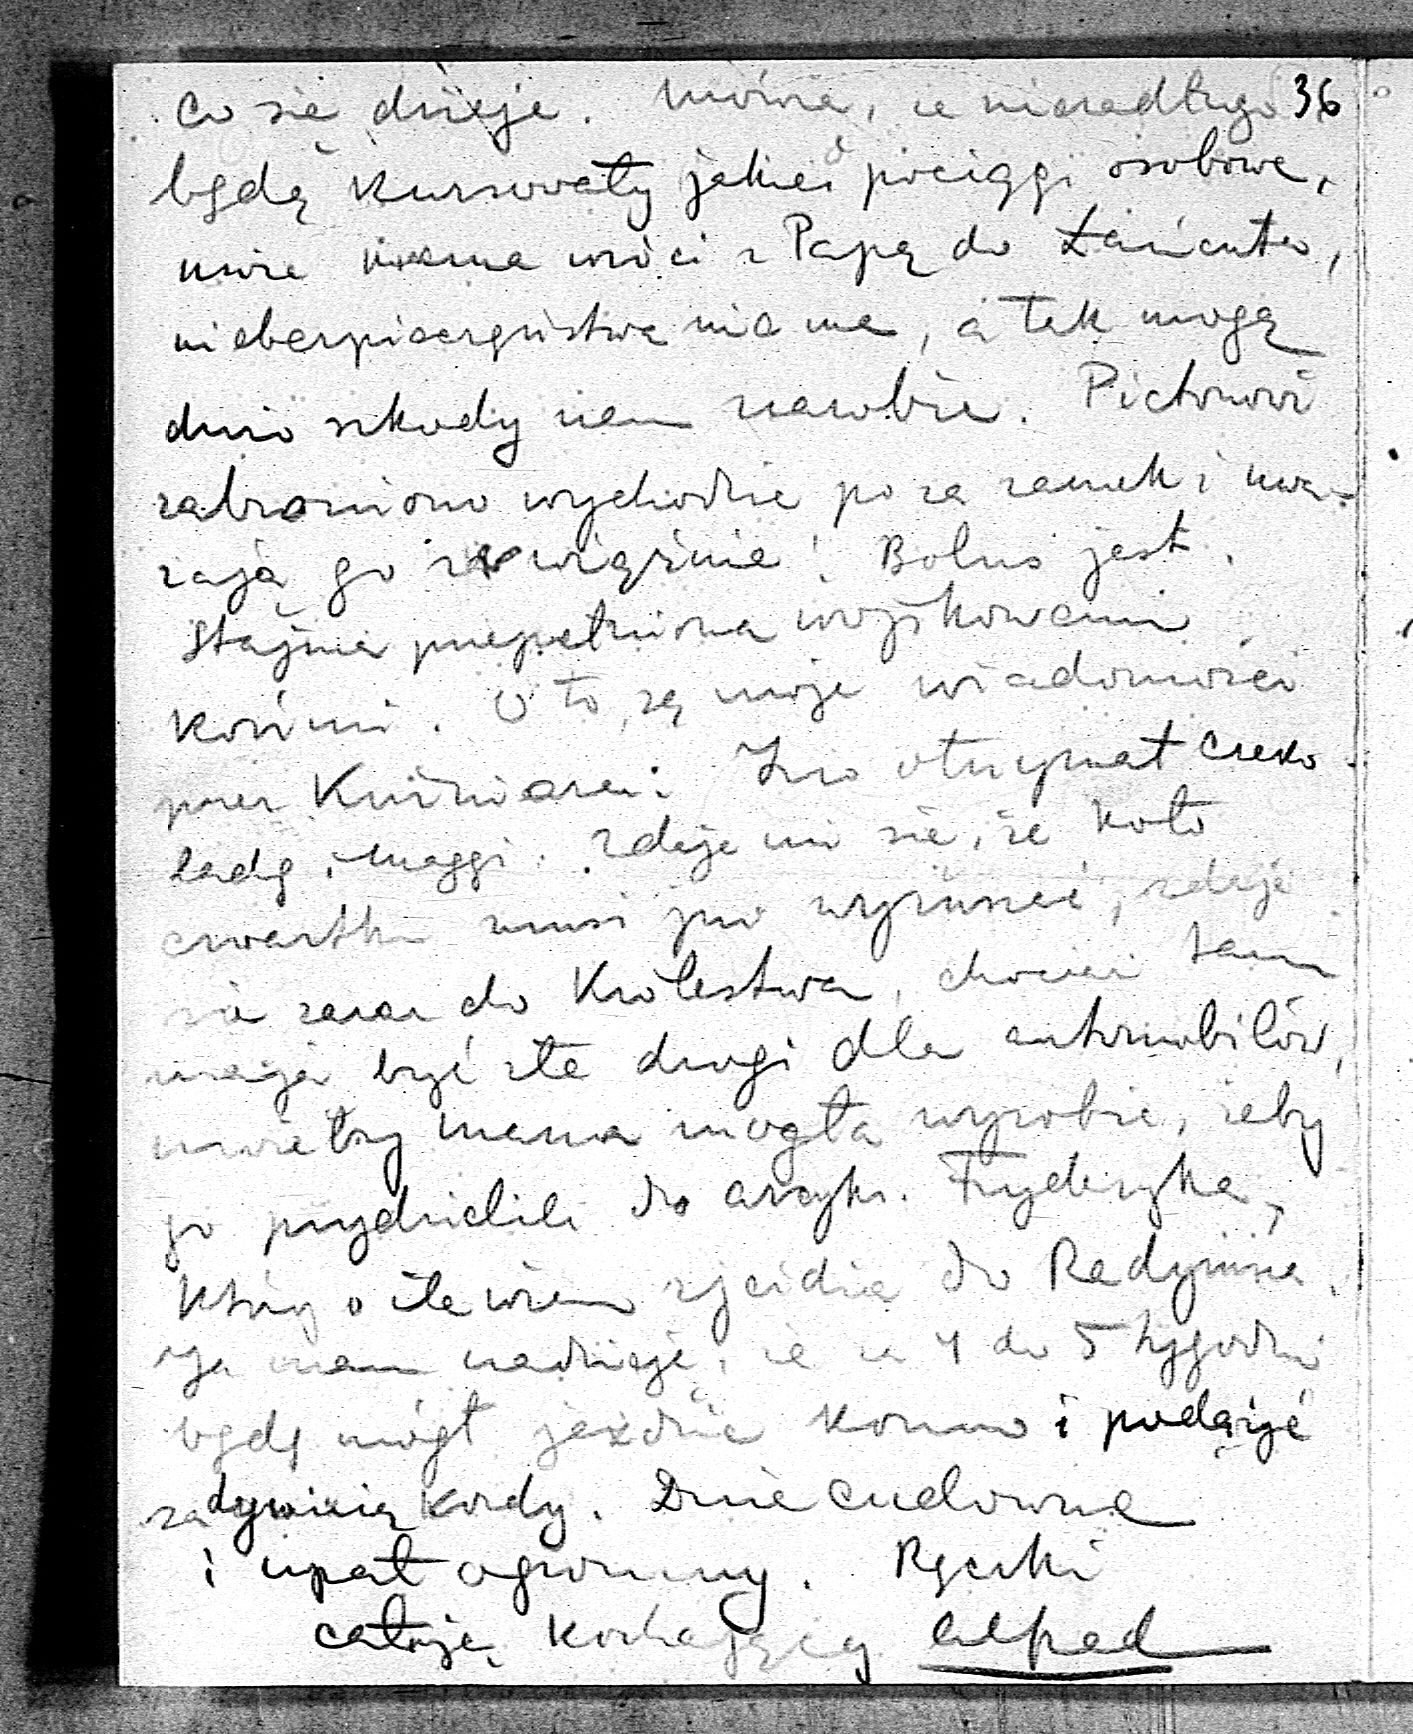 co się dzieje. Mówią, że niezadługo 36
będą kursowały jakieś pociągi osobowe,
może mama wróci z Papą do Łańcuta,
niebezpieczeństwa nie ma, a tak mogą
dużo szkody nam narobić. Pichonowi
zabroniono wychodzić po za zamek i uwa-
żają go za więźnia! Boluś jest.
Stajnia przepełniona wojskowemi
końmi. Oto są moje wiadomości
przez Kuźniara: Juo otrzymał czeko-
ladę i Maggi. Zdaje mi się, że koło
czwartku musi już wyruszać, zdaje
się zaraz do Królestwa, chociaż tam
mają być złe drogi dla automobilów,
może by mama mogła wyrobić, żeby
go przydzielili do arcyks. Fryderyka,
który o ile wiem zjeżdża do Radymna.
Ja mam nadzieję, że za 4 do 5 tygodni
będę mógł jeździć konno i podążyć
za dywizią Kordy. Dnie cudowne
i upał ogromny. Rączki
całuję, kochający Alfred